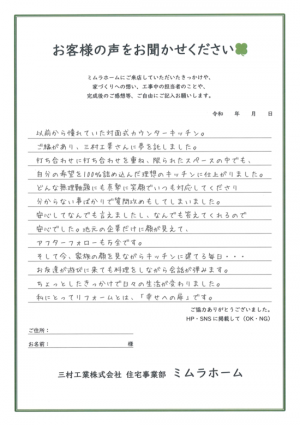 お客様の声をお聞かせください
ミムラホームにご来店していただいたきっかけや、
家づくりへの想い、工事中の担当者のことや、
完成後のご感想等、ご自由にご記入お願いします。
令和　年　月　日
以前から憧れていた対面式カウンターキッチン。
ご縁があり、三村工業さんに夢を託しました。
打ち合わせに打ち合わせを重ね、限られたスペースの中でも、
自分の希望を100%詰め込んだ理想のキッチンに仕上がりました。
どんな無理難題にも真摯に笑顔でいつも対応してくださり
分からない事ばかりで質問攻めもしてしまいました。
安心してなんでも言えましたし、なんでも答えてくれるので
安心でした。地元の企業だけに顔が見えて、
アフターフォローも万全です。
そして今、家族の顔を見ながらキッチンに建てる毎日・・・
お友達が遊びに来ても料理をしながら会話が弾みます。
ちょっとしたきっかけで日々の生活が変わりました。
私にとってリフォームとは、「幸せへの扉」です。
ご協力ありがとうございました。
HP・SNSに掲載して（OK・NG）
ご住所：
お名前：　様
三村工業株式会社 住宅事業部 ミムラホーム